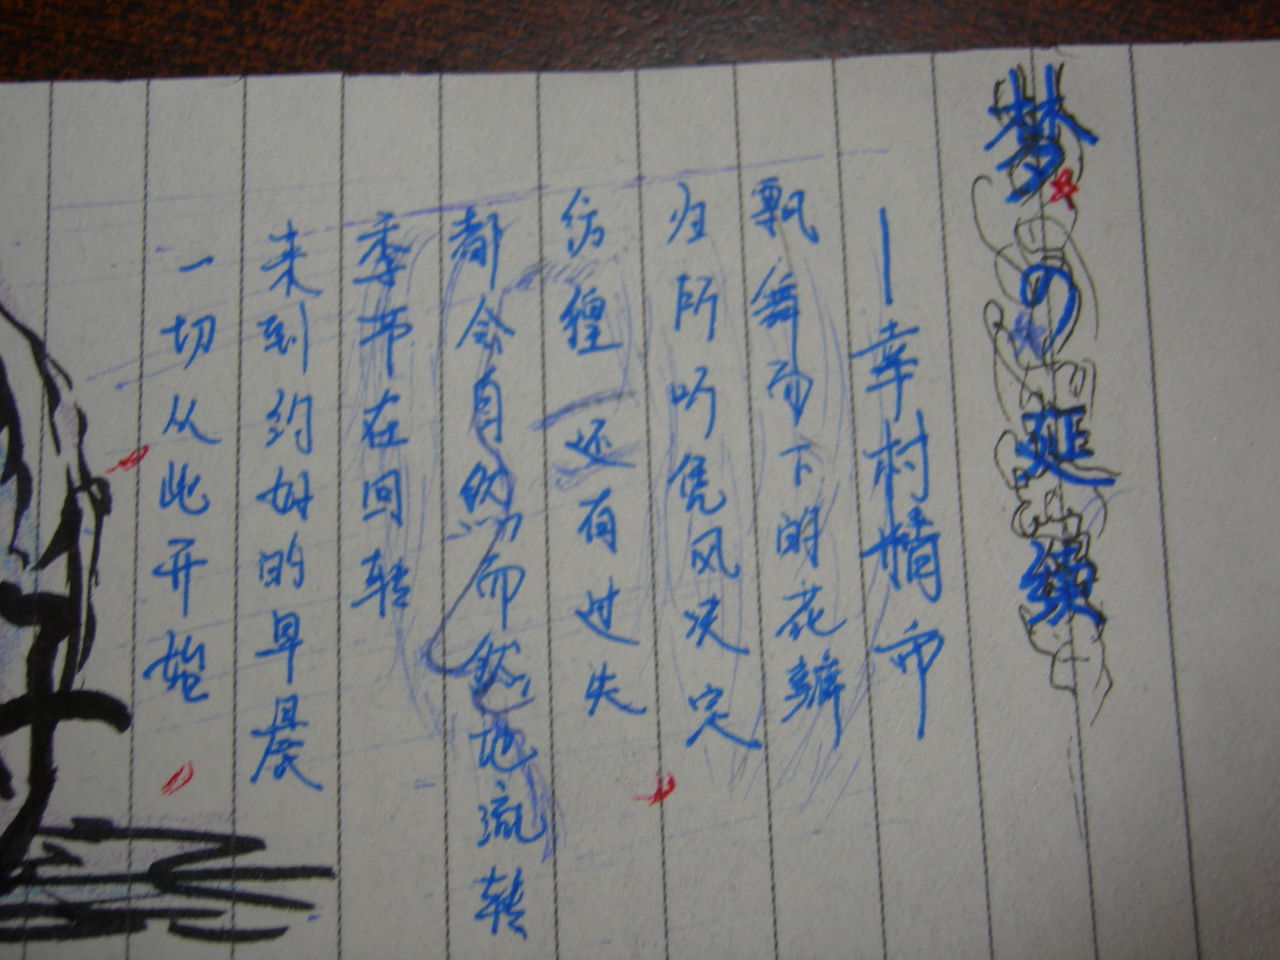 梦の延续
—幸村精市
飘舞而下的花瓣
归所听凭风决定
彷徨还有过失
都会自然而然地流转
季节在回转
来到约好的早晨
一切从此开始